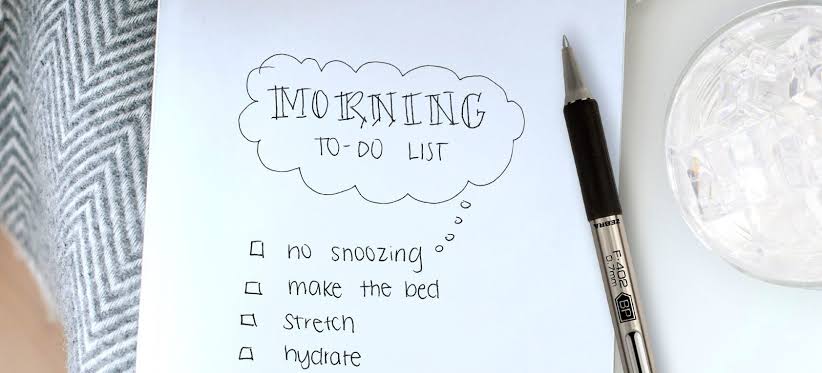 MORNING
TO-DO LIST
no snoozing
make the bed
stretch
hydrate
ZEBRA
F-402
0.7mm
BP